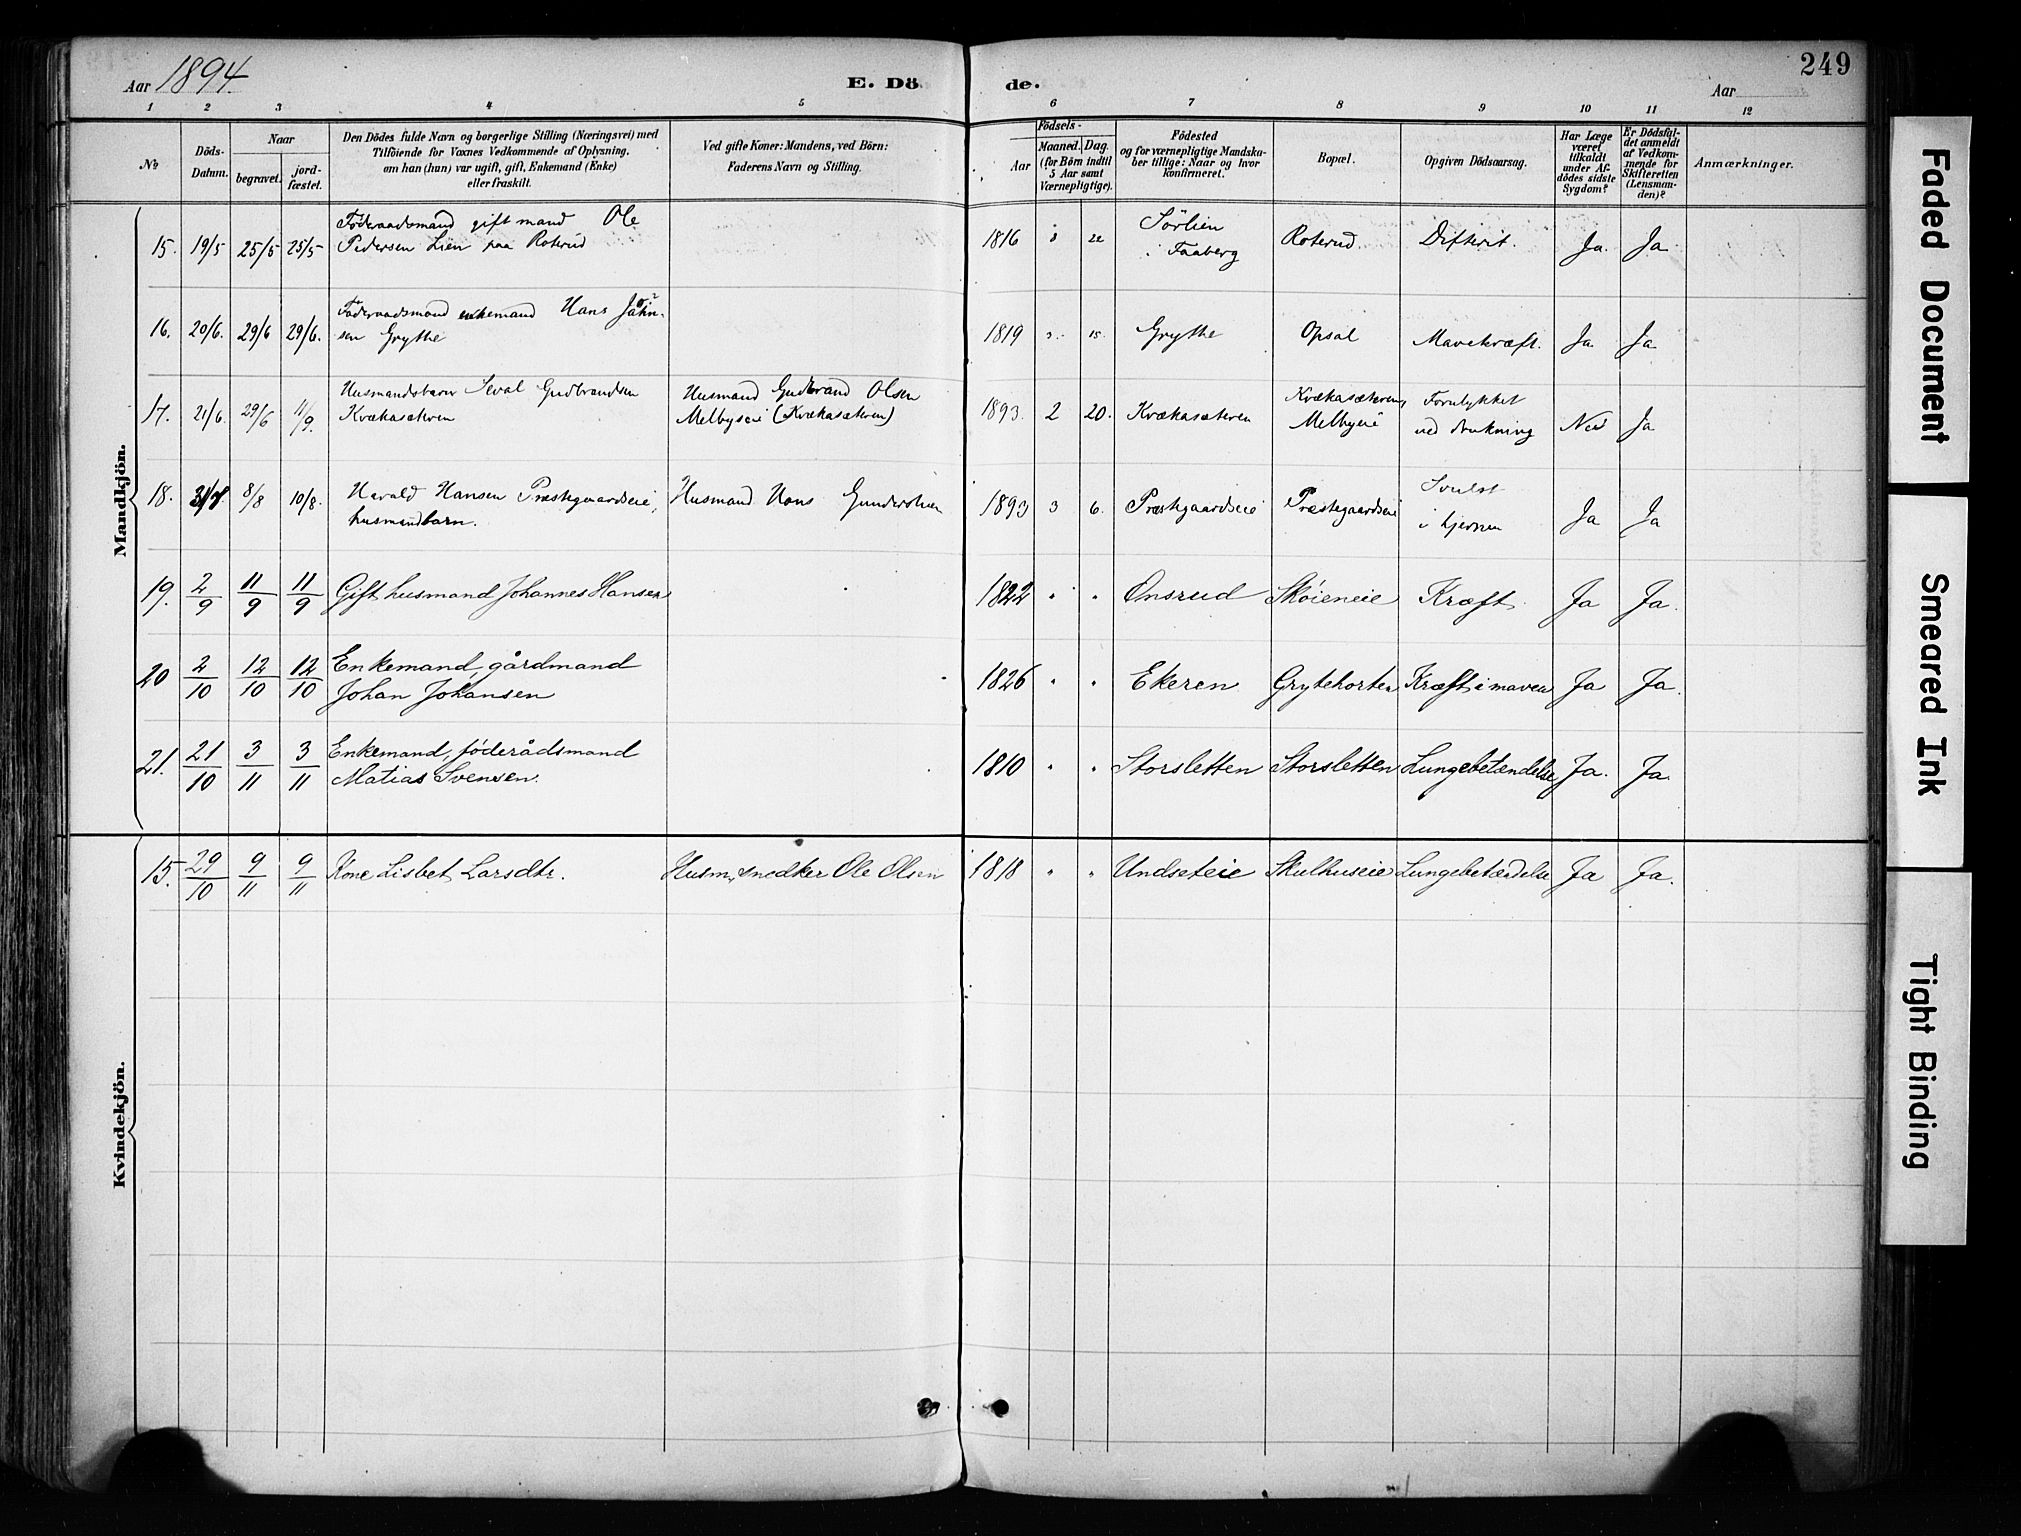 Aar 1894.
E. Dö
de.
Aar
249
1 2 3 4 5 6 7 8 9 10 11 12
No
Döds-
Datum.
Naar
begravet.
jord-
fæstet.
Den Dödes fulde Navn og borgerlige Stilling (Næringsvei) med
Tilföiende for Voxnes Vedkommende af Oplysning.
om han (hun) var ugift, gift, Enkemand (Enke)
eller fraskilt.
Ved gifte Koner: Mandens, ved Börn:
Faderens Navn og Stilling.
Födsels-
Aar
Maaned. Dag.
(for Börn indtil
5 Aar samt
Værnepligtige).
Födested
og for værnepligtige Mandska-
ber tillige: Naar og hvor
konfirmeret.
Bopæl.
Opgiven Dödsaarsag.
Har Læge
været
tilkaldt
under Af-
dödes sidste
Sygdom?
Er Dödsfal-
det anmeldt
af Vedkom-
mende for
Skifteretten
(Lensman-
den)?
Anmærkninger.
Mandkjön.
15. 19/5 25/5 25/5 Föderaadsmand gift mand Ole
Pedersen Lien paa Roterud
1816 22 Sörlien
i Faaberg
Roterud. Difterit. Ja. Ja
16. 20/6. 29/6 29/6. Föderaadsmand enkemand Hans
sen Grythe
1819 15. Grythe Opsal Mavekræft. Ja Ja
17. 21/6. 29/6 11/9. Husmandsbarn Seval Gudbrandsen
Kvækasætren
Husmand Gudbrand Olsen
Melbyseie (Kvækasætren)
1893. 2 20. Kvækasæteren
Kvækasæteren,
Melbyeie
Forulykket
ved drukning
Nei Ja
18. 31/7 8/8 10/8. Harald Hansen Præstegaardseie,
husmandbarn.
Husmand Hans Gundersen
1893 3 6. Præstegaardseie Præstegaardseie
Svulst
i hjernen
Ja Ja
19. 2/9 11/9 11/9 Gift husmand Johannes Hansen
1822 " " Onsrud Skóieneie Kræft. Ja Ja.
20 2/10 12/10 12/10 Enkemand, gårdmand
Johan Johansen
1826 " " Ekeren Grytehorten Kræft i maven Ja Ja.
21. 21/10 3/11 3/11 Enkemand, föderådsmand
Matias Svensen.
1810 " " Storsletten Storsletten Lungebetændelse Ja. Ja.
Kvindekjön.
15. 29/10 9/11 9/11 Kone Lisbet Larsdtr. Husm., snedker Ole Olsen
1818 " " Undseteie Skulhuseie Lungebetændelse Ja Ja.
Faded Document
Smeared Ink
Tight Binding